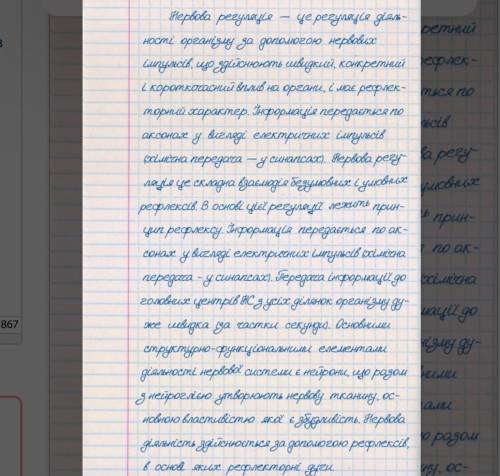 Нервова регуляція — це регуляція діяль-
ності організму за допомогою нервових
імпульсів, що здійснюють швидкий, конкретний
і короткочасний вплив на органи, і має рефлек-
торний характер. Інформація передається по
аксонах у вигляді електричних імпульсів
(хімічна передача — у синапсах). Нервова регу-
ляція це складна взаємодія безумовних і умовних
рефлексів. В основі цієї регуляції лежить прин-
цип рефлексу. Інформація передається по ак-
сонах у вигляді електричних імпульсів (хімічна
передача - у синапсах). Передача інформації до
головних центрів НС з усіх ділянок організму ду-
же швидка (за частки секунди). Основними
структурно-функціональними елементами
діяльності нервової системи є нейрони, що разом
з нейроглією утворюють нервову тканину, ос-
новною властивістю якої є збудливість. Нервова
діяльність здійснюється за допомогою рефлексів,
в основі яких рефлекторні дуги.
867